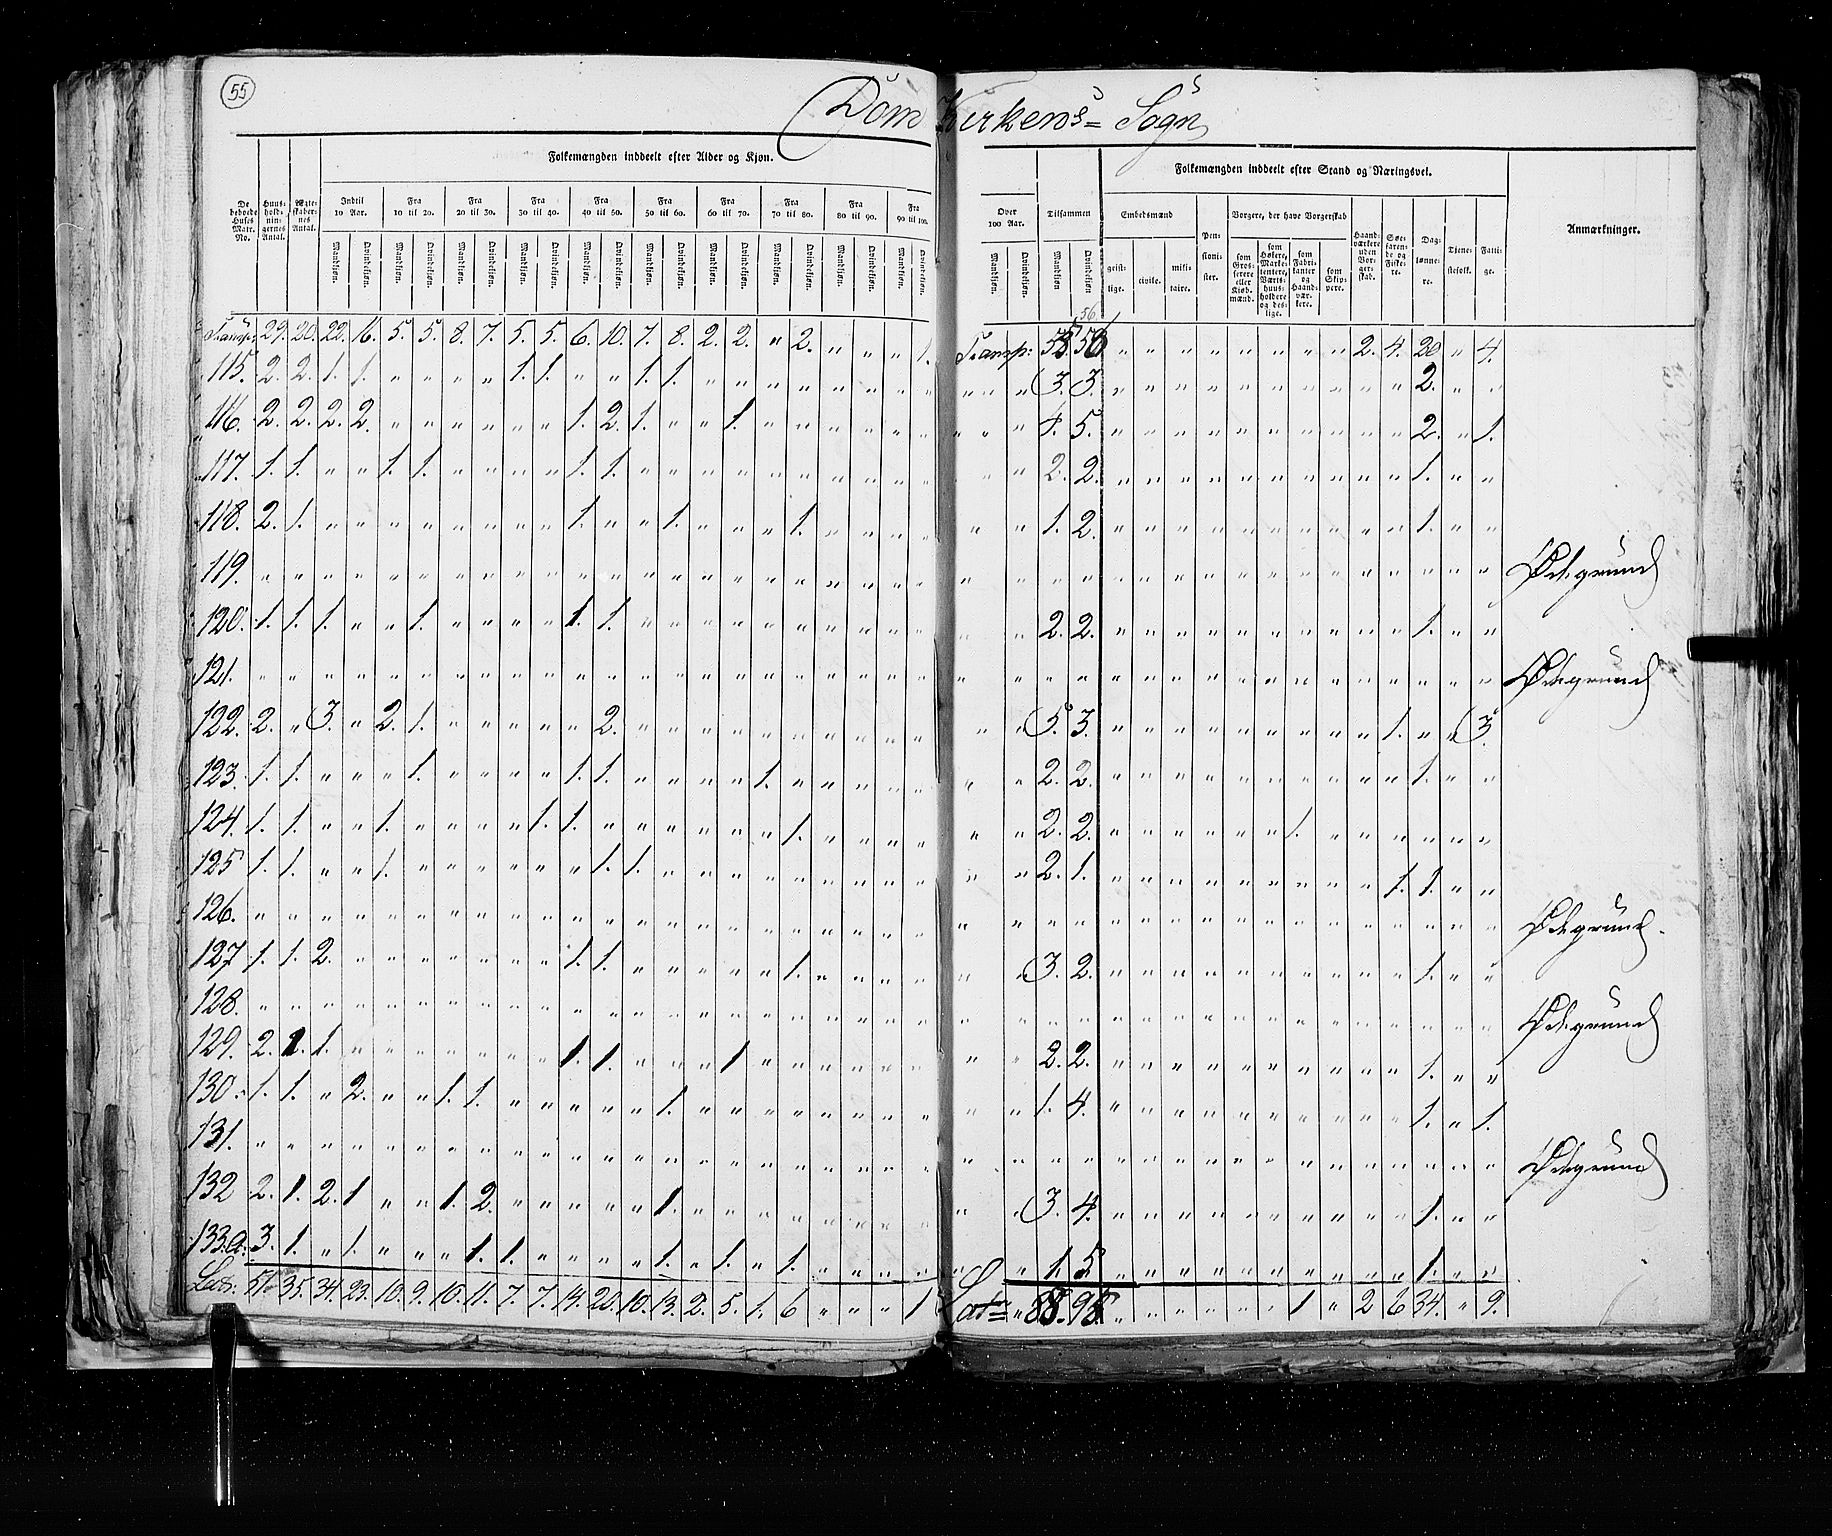 55
Dom Kirkens= Sogn
Folkemængden inddeelt efter Alder og Kjøn.
Folkemængden inddeelt efter Stand og Næringsvei.
De beboede Huses Matr. No. | Huus-hold-nin-gernes Antal. | Ægte-skaber-nes Antal. | Indtil 10 Aar. | Fra 10 til 20. | Fra 20 til 30. | Fra 30 til 40. | Fra 40 til 50. | Fra 50 til 60. | Fra 60 til 70. | Fra 70 til 80. | Fra 80 til 90. | Fra 90 til 100. | Over 100 Aar. | Tilsammen | Embedsmænd | Pen-sioni-ster. | Borgere, der have Borgerskab | Haand-værkere uden Bor-ger-skab. | Søe-faren-de og Fiske-re. | Dag-lønne-re. | Tjene-stefolk. | Fatti-ge. | Anmærkninger.
Mandkiøn. Qvindekiøn. Mandkiøn. Qvindekiøn. Mandkiøn. Qvindekiøn. Mandkiøn. Qvindekiøn. Mandkiøn. Qvindekiøn. Mandkiøn. Qvindekiøn. Mandkiøn. Qvindekiøn. Mandkiøn. Qvindekiøn. Mandkiøn. Qvindekiøn. Mandkiøn. Qvindekiøn. Mandkiøn. Qvindekiøn. Mandkiøn Qvindekiøn | geist-lige. | civile. | mili-taire. | som Gros-serere eller Kiøb-mænd. | som Høkere, Marke-tentere, Værts-huus-holdere og des-lige. | som Fabri-kanter og Haand-vær-kere. | som Skip-pere.
56.
Transp: 29. 20. 22. 16. 5. 5. 8. 7. 5. 5. 6. 10. 7. 8. 2. 2. " 2. " " " 1. Transp: 56 " " " " " " " " 2. 4. 20 " 4.
115. 2. 2. 1. 1. " " " " 1. 1. " " 1. 1. " " " " " " " " " " 3. 3. " " " " " " " " " " 2. " "
116. 2. 2. 2. 2. " " " " " " 1. 2. 1. " " 1. " " " " " " " " 4. 5. " " " " " " " " " " 2. " 1.
117. 1. 1. " " 1. 1. " " " " 1. 1. " " " " " " " " " " " " 2. 2. " " " " " " " " " " 1. " "
118. 2. 1. " " " " " " " " 1. " " 1. " " " 1. " " " " " " 1. 2. " " " " " " " " " " 1. " "
119. " " " " " " " " " " " " " " " " " " " " " " " " " " " " " " " " " " " " " " " Ødegrund
120. 1. 1. 1. " " 1. " " " " 1. 1. " " " " " " " " " " " " 2. 2. " " " " " " " " " " 1. " "
121. " " " " " " " " " " " " " " " " " " " " " " " " " " " " " " " " " " " " " " " Ødegrund
122. 2. " 3. " 2. 1. " " " " " 2. " " " " " " " " " " " " 5. 3. " " " " " " " " " 1. " " 3.
123. 1. 1. " " " 1. " " " " 1. 1. " " " " 1. " " " " " " " 2. 2. " " " " " " " " " " 1. " "
124. 1. 1. " " 1. " " " " 1. 1. " " " " " " 1. " " " " " " 2. 2. " " " " " " 1. " " " " " "
125 1. 1. " " 1. " " " " " " 1. 1. " " " " " " " " " " " 2. 1. " " " " " " " " " 1. 1. " "
126. " " " " " " " " " " " " " " " " " " " " " " " " " " " " " " " " " " " " " " " Ødegrund.
127 1. 1. 2. " " " " " " " 1. 1. " " " " " 1. " " " " " " 3. 2. " " " " " " " " " " 1. " "
128. " " " " " " " " " " " " " " " " " " " " " " " " " " " " " " " " " " " " " " " Ødegrund
129. 2. 1. 1. " " " " " " " 1. 1. " " " 1 " " " " " " " " 2. 2. " " " " " " " " " " 1. " "
130. 1. 1. " 2. " " 1. 1. " " " " " 1. " " " " " " " " " " 1. 4. " " " " " " " " " " 1. " 1.
131. " " " " " " " " " " " " " " " " " " " " " " " " " " " " " " " " " " " " " " " Ødegrund
132 2. 1. 2. 1 " " 1. 2. " " " " " 1. " " " " " " " " " " 3. 4. " " " " " " " " " " 1. " "
133.a. 3. 1. " 1. " " " 1. 1. " " " " 1. " 1. " 1. " " " " " " 1. 5. " " " " " " " " " " 1. " "
Lat: 51. 35. 34. 23. 10. 9. 10. 11. 7. 7. 14. 20. 10. 13. 2. 5. 1. 6 " " " 1 Lat= " 88. 95. " " " " " " 1 " 2 6 34. " 9.